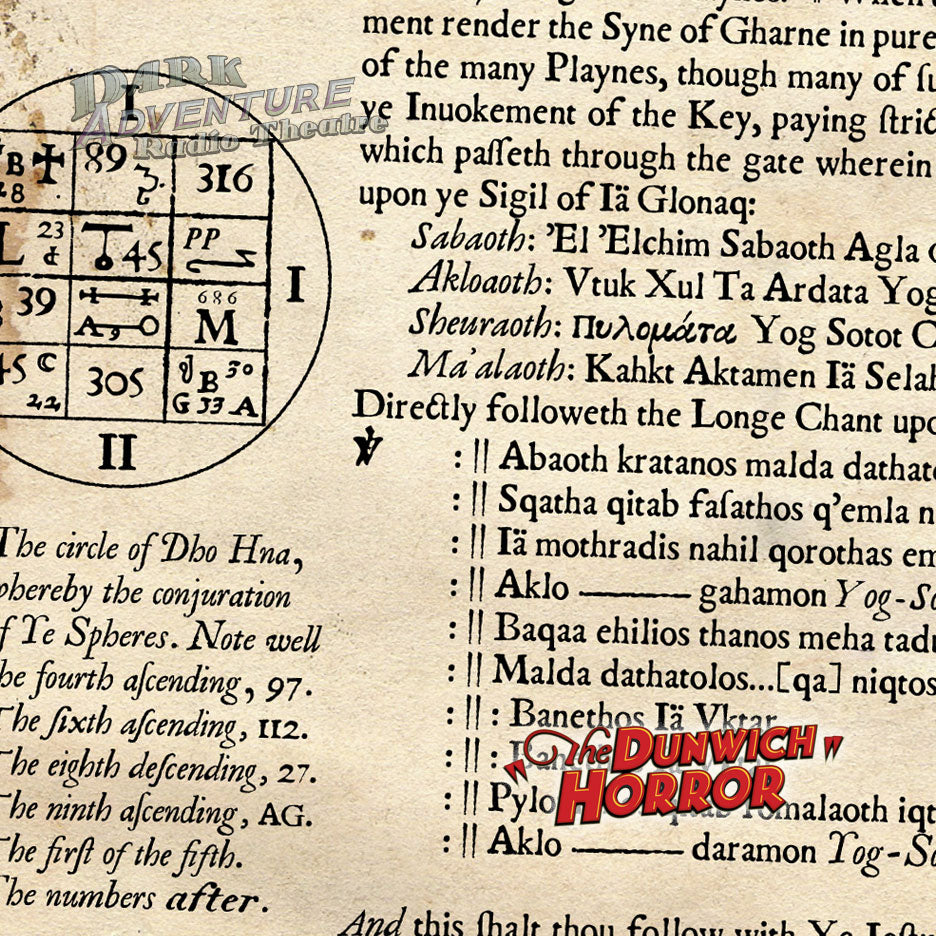 DARK
ADVENTURE
Radio Theatre
I
B
89
316
28
23
45
PP
I
39
686
M
A
45
C
305
30
B
22
G 33 A
II
The circle of Dho Hna,
whereby the conjuration
of Ye Spheres. Note well
The fourth aſcending, 97.
The ſixth aſcending, 112.
The eighth deſcending, 27.
The ninth aſcending, AG.
The firſt of the fifth.
The numbers after.
ment render the Syne of Gharne in pure
of the many Playnes, though many of ſu
ye Inuokement of the Key, paying ſtrict
which paſſeth through the gate wherein
upon ye Sigil of Iä Glonaq:
Sabaoth: ’El ’Elchim Sabaoth Agla
Akloaoth: Vtuk Xul Ta Ardata Yog
Sheuraoth: Πυλομάτα Yog Sotot
Ma’alaoth: Kahkt Aktamen Iä Selah
Directly followeth the Longe Chant upo
:|| Abaoth kratanos malda dathato
:|| Sqatha qitab faſathos q’emla n
:|| Iä mothradis nahil qorothas em
:|| Aklo ——— gahamon Yog-So
:|| Baqaa ehilios thanos meha tadu
:|| Malda dathatolos...[qa] niqtos
:||: Banethos Iä Vktar
:||:
:|| Pylo Yomalaoth iqt
:|| Aklo ——— daramon Yog-So
And this ſhalt thou follow with Ye
"The DUNWICH
HORROR"